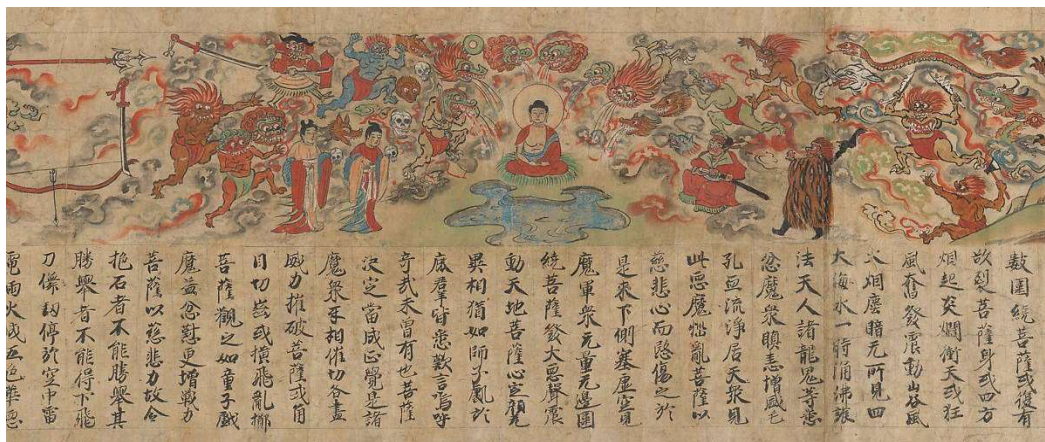 數圍繞菩薩或復有
欲裂菩薩身或四方
烟起炎爛衝天或狂
風奮發震動山谷風
火烟塵暗无所見四
大海水一時涌沸護
法天人諸龍鬼等悉
忿魔衆瞋恚增盛毛
孔血流淨居天衆見
此惡魔惱亂菩薩以
慈悲心而愍傷之於
是來下側塞虛空見
魔軍衆无量无邊圍
繞菩薩發大惡聲震
動天地菩薩心定顏无
異相猶如師子處於
鹿羣皆悉歎言嗚呼
奇哉未曾有也菩薩
決定當成正覺是諸
魔衆互相催切各盡
威力摧破菩薩或角
目切齒或橫飛亂擲
菩薩觀之如童子戲
魔益忿懟更增戰力
菩薩以慈悲力故令
抱石者不能勝舉其
勝舉者不能得下飛
刀儛劒停於空中雷
電雨火成五色華惡